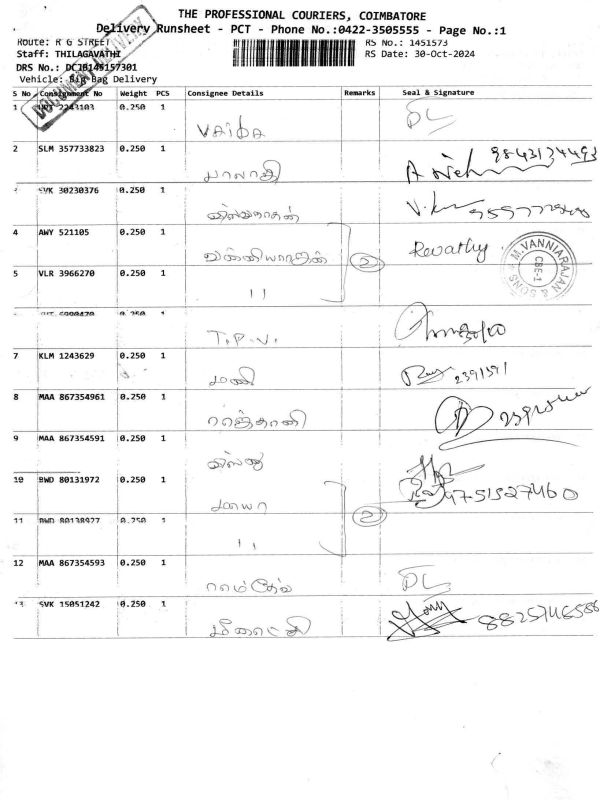 THE PROFESSIONAL COURIERS, COIMBATORE
Delivery Runsheet - PCT - Phone No.:0422-3505555 - Page No.:1
Route: R G STREET
RS No.: 1451573
Staff: THILAGAVATHI
RS Date: 30-Oct-2024
DRS No.:
Vehicle: Big Bag Delivery
DOCUMENT DELIVERY
S No Consignment No Weight PCS Consignee Details Remarks Seal & Signature
1 2243103 0.250 1
VAIBA
DL
2 SLM 357733823 0.250 1
பாலாஜி
9843134493
3 SVK 30230376 0.250 1
விஸ்வநாதன்
4 AWY 521105 0.250 1
வன்னியராஜன்
2
Revathy
M.VANNIARAJAN & SONS
CBE-1
5 VLR 3966270 0.250 1
11
0.250 1
T.P.V.
7 KLM 1243629 0.250 1
மணி
8 MAA 867354961 0.250 1
9 MAA 867354591 0.250 1
விஸ்ணு
10 BWD 80131972 0.250 1
மாயா
2
9751527460
11 BWD 80138927 0.250 1
11
12 MAA 867354593 0.250 1
ராம்தேவ்
DL
13 SVK 15051242 0.250 1
மீனாட்சி
8825746586